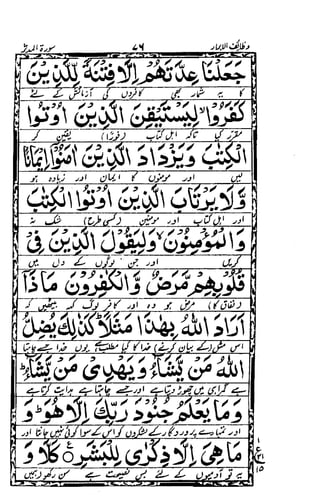 وظائف الابرار ۷۶ سورة المدثر
جَعَلْنَا عِدَّتَهُمْ اِلَّا فِتْنَةً لِّلَّذِيْنَ
کا یہ شمار بھی کافروں کی آزمائش کے لئے
كَفَرُوْا لِيَسْتَيْقِنَ الَّذِيْنَ اُوْتُوا
مقرر کی تاکہ اہل کتاب (فوراً) یقین کر
الْكِتٰبَ وَيَزْدَادَ الَّذِيْنَ اٰمَنُوْٓا اِيْمَانًا
لیں اور مومنوں کا ایمان اور زیادہ ہو
وَّلَا يَرْتَابَ الَّذِيْنَ اُوْتُوا الْكِتٰبَ
اور اہل کتاب اور مومنین (کسی طرح) شک نہ
وَالْمُؤْمِنُوْنَ وَلِيَقُوْلَ الَّذِيْنَ فِيْ
کریں اور جن لوگوں کے دل میں
قُلُوْبِهِمْ مَّرَضٌ وَّالْكٰفِرُوْنَ مَاذَآ
(نفاق کا) مرض ہو وہ اور کافر لوگ کہہ بیٹھیں کہ
اَرَادَ اللّٰهُ بِهٰذَا مَثَلًا كَذٰلِكَ يُضِلُّ
اس مثل (کے بیان کرنے) خدا کا کیا مطلب ہے یوں خدا جسے چاہتا
اللّٰهُ مَنْ يَّشَآءُ وَيَهْدِيْ مَنْ يَّشَآءُ
ہے گمراہی میں چھوڑ دیتا ہے اور جسے چاہتا ہے ہدایت کرتا ہے
وَمَا يَعْلَمُ جُنُوْدَ رَبِّكَ اِلَّا هُوَ وَ
اور تمہارے پروردگار کے لشکروں کو اس کے سوا کوئی نہیں جانتا اور
مَا هِيَ اِلَّا ذِكْرٰى لِلْبَشَرِ كَلَّا وَ
یہ تو آدمیوں کے لئے بس نصیحت ہے سن رکھو (ہمیں